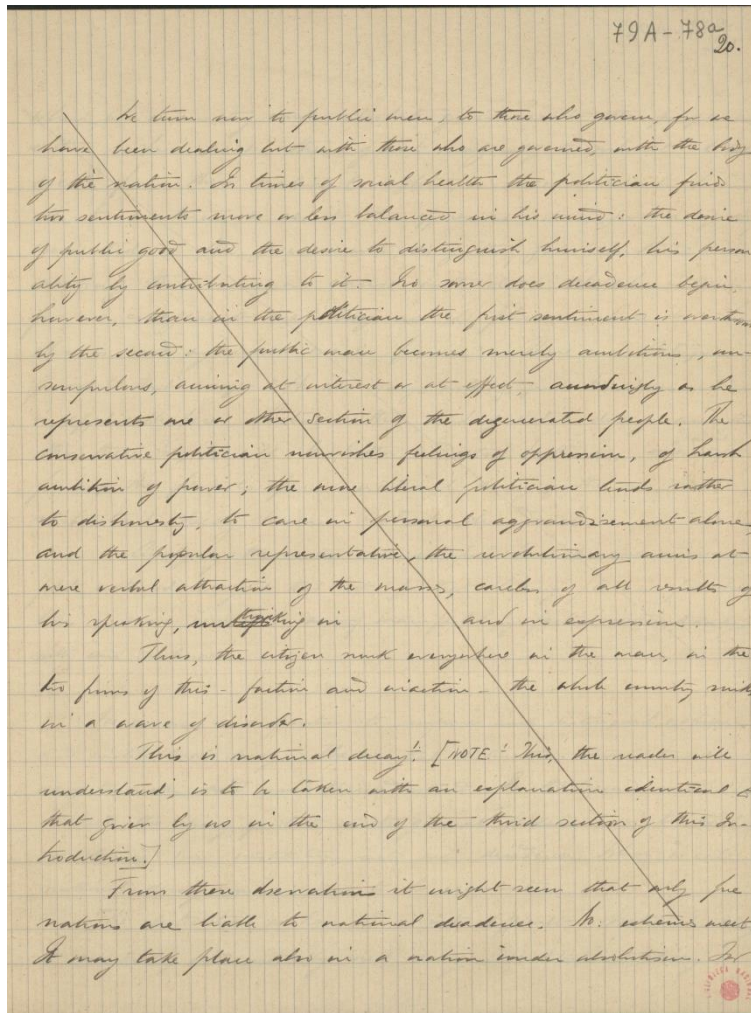 79A-78a
20.
We turn now to public men, to those who govern, for we
have been dealing but with those who are governed, with the body
of the nation. In times of social health the politician finds
two sentiments more or less balanced in his mind: the desire
of public good and the desire to distinguish himself, his person-
ality by contributing to it. No sooner does decadence begin,
however, than in the politician the first sentiment is overthrown
by the second: the public man becomes merely ambitious, un-
scrupulous, aiming at interest or at effect, accordingly as he
represents one or other section of the degenerated people. The
conservative politician nourishes feelings of oppression, of harsh
ambition of power; the more liberal politician tends rather
to dishonesty, to care in personal aggrandisement alone,
and the popular representative, the revolutionary aims at
mere verbal attraction of the masses, careless of all results of
his speaking, unthinking in and in expression.
Thus, the citizen sunk everywhere in the man, in the
two forms of this - faction and inaction - the whole country sinks
in a wave of disorder.
This is national decay.¹ [NOTE ¹ This, the reader will
understand, is to be taken with an explanation identical to
that given by us in the end of the third section of this In-
troduction.]
From these observations it might seem that only free
nations are liable to national decadence. No: extremes meet
It may take place also in a nation under absolutism. For